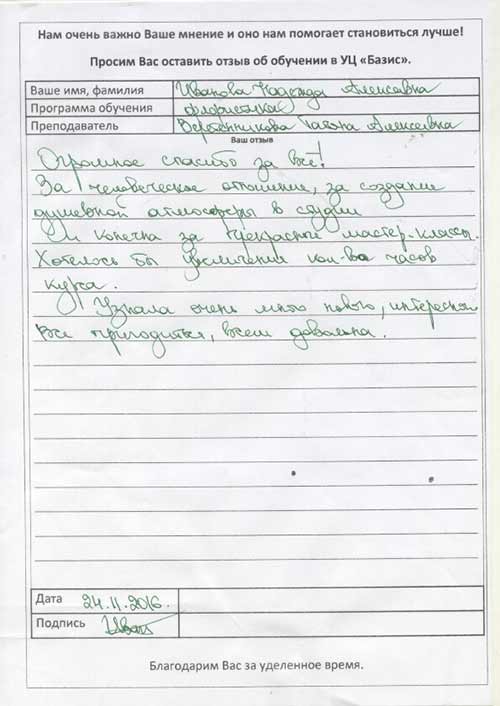 Нам очень важно Ваше мнение и оно нам помогает становиться лучше!
Просим Вас оставить отзыв об обучении в УЦ «Базис».
Ваше имя, фамилия Иванова Надежда Алексеевна
Программа обучения флористика
Преподаватель Веретенникова Татьяна Алексеевна
Ваш отзыв
Огромное спасибо за всё!
За человеческое отношение, за создание
душевной атмосферы в студии
И конечна за прекрасной мастер-классы.
Хотелось бы увеличения кол-ва часов
курса.
Узнала очень много нового, интересн
Все пригодиться, всем довольна.
Дата 24.11.2016.
Подпись Иван
Благодарим Вас за уделенное время.